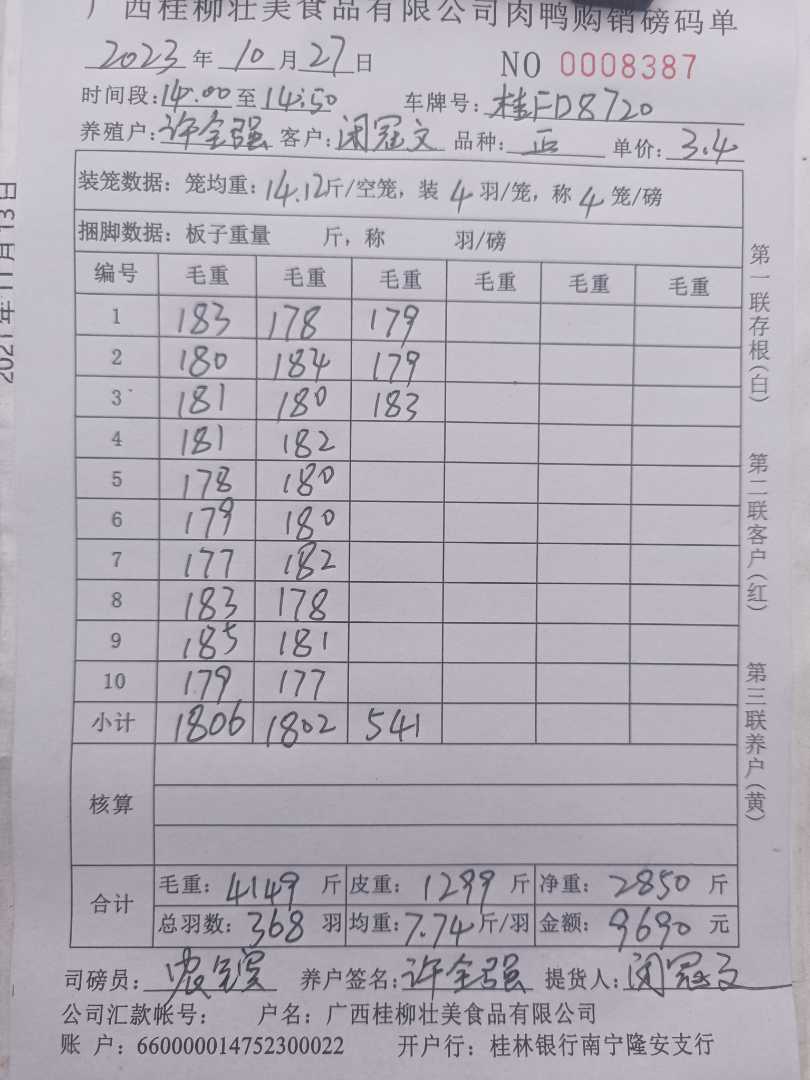 广西桂柳壮美食品有限公司肉鸭购销磅码单
2023年10月27日 NO 0008387
时间段:14.00至14:50 车牌号:桂FD8720
养殖户:许全强 客户:闭冠文 品种:正 单价:3.4
装笼数据:笼均重:14.12斤/空笼,装4羽/笼,称4笼/磅
捆脚数据:板子重量 斤,称 羽/磅
编号 毛重 毛重 毛重 毛重 毛重 毛重
1 183 178 179
2 180 184 179
3 181 180 183
4 181 182
5 178 180
6 179 180
7 177 182
8 183 178
9 185 181
10 179 177
小计 1806 1802 541
核算
合计 毛重:4149斤 皮重:1299斤 净重:2850斤
总羽数:368羽 均重:7.74斤/羽 金额:9690元
司磅员: 养户签名:许全强 提货人:闭冠文
公司汇款帐号: 户名:广西桂柳壮美食品有限公司
账户:660000014752300022 开户行:桂林银行南宁隆安支行
第一联存根(白) 第二联客户(红) 第三联养户(黄)
2021年11月13日